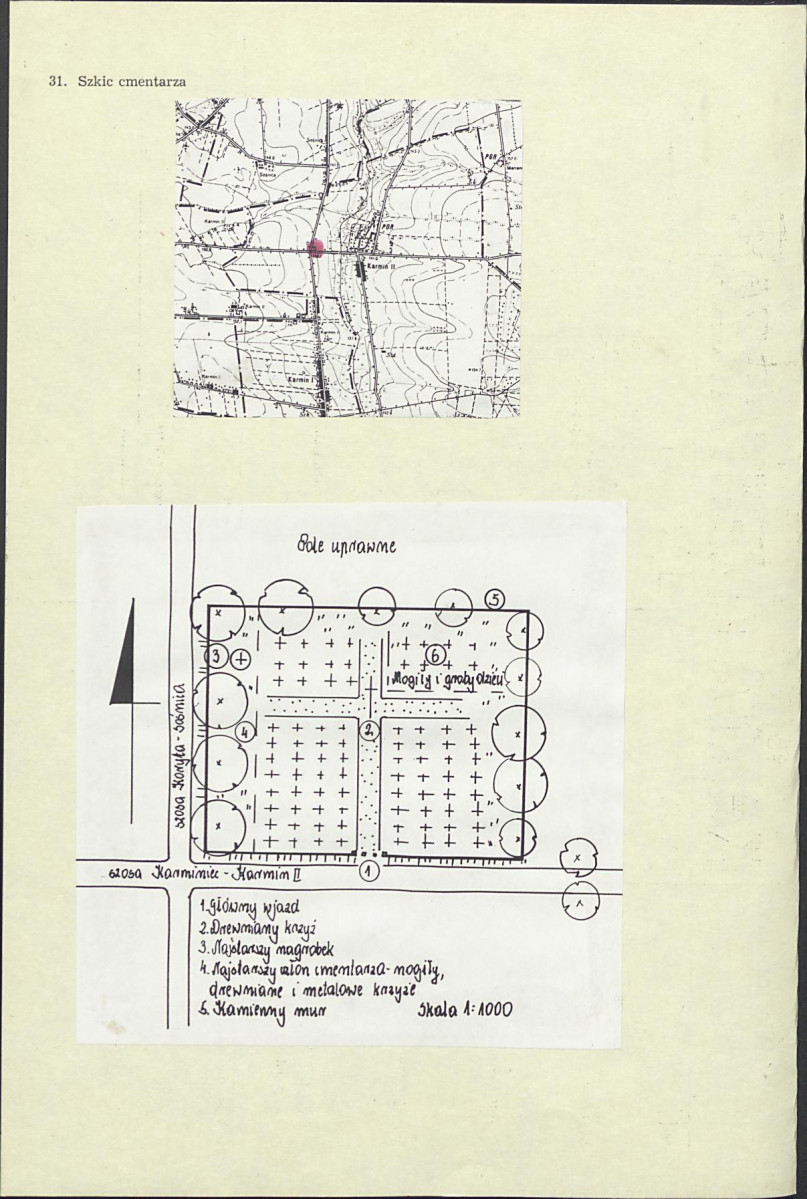 31. Szkic cmentarza
Sośnica
PGR
Karmin
PGR
Karmin II
Karmin I
Pole uprawne
5
3
6
Mogiły i groby dzieci
szosa Koryta-Sośnica
4
2
szosa Karminiec - Karmin II
1
1. Główny wjazd
2. Drewniany krzyż
3. Najstarszy nagrobek
4. Najstarszy człon cmentarza - mogiły,
drewniane i metalowe krzyże
5. Kamienny mur
Skala 1:1000